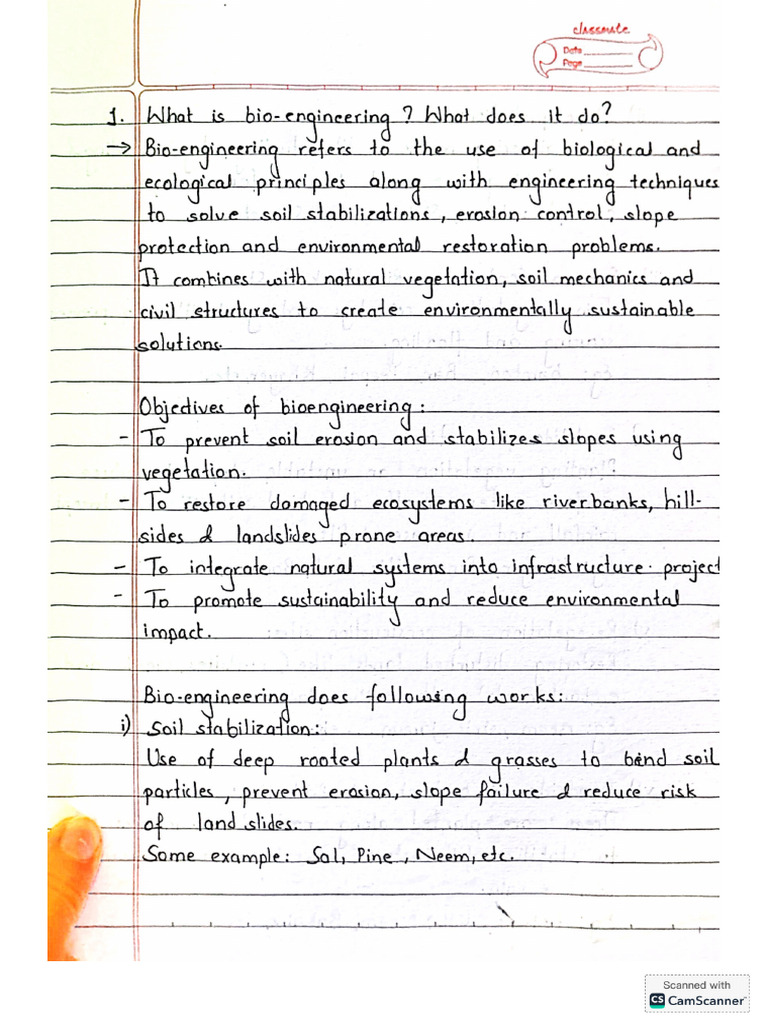 classmate
Date
Page
1. What is bio-engineering? What does it do?
→ Bio-engineering refers to the use of biological and
ecological principles along with engineering techniques
to solve soil stabilizations, erosion control, slope
protection and environmental restoration problems.
It combines with natural vegetation, soil mechanics and
civil structures to create environmentally sustainable
solutions.
Objectives of bioengineering:
- To prevent soil erosion and stabilizes slopes using
vegetation.
- To restore damaged ecosystems like riverbanks, hill-
sides & landslides prone areas.
- To integrate natural systems into infrastructure project
- To promote sustainability and reduce environmental
impact.
Bio-engineering does following works:
i) Soil stabilization:
Use of deep rooted plants & grasses to bind soil
particles, prevent erosion, slope failure & reduce risk
of land slides.
Some example: Sal, Pine, Neem, etc.
Scanned with
CS CamScanner